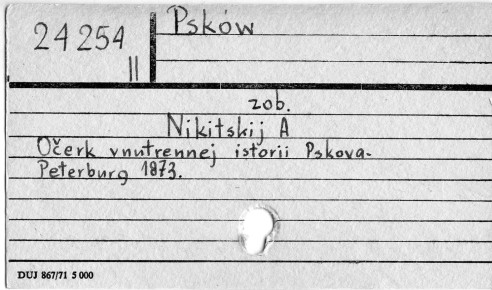 24 254
II
Psków
zob.
Nikitskij A
Očerk vnutrennej istorii Pskova-
Peterburg 1873.
DUJ 867/71 5 000